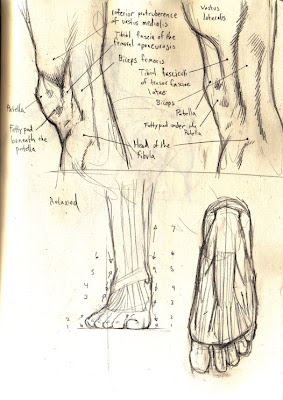 Interior protruberence
of vastus medialis
Tibial fascia of the
femoral aponeurosis
Biceps femoris
Vastus
lateralis
Tibial fasciculi
of tensor fasciae
latae
Biceps
Patella
Fatty pad under the
Patella
Patella
Fatty pad
beneath the
patella
Head of the
fibula
Relaxed
6
5
4
3
2
1
7
6
5
4
3
2
1